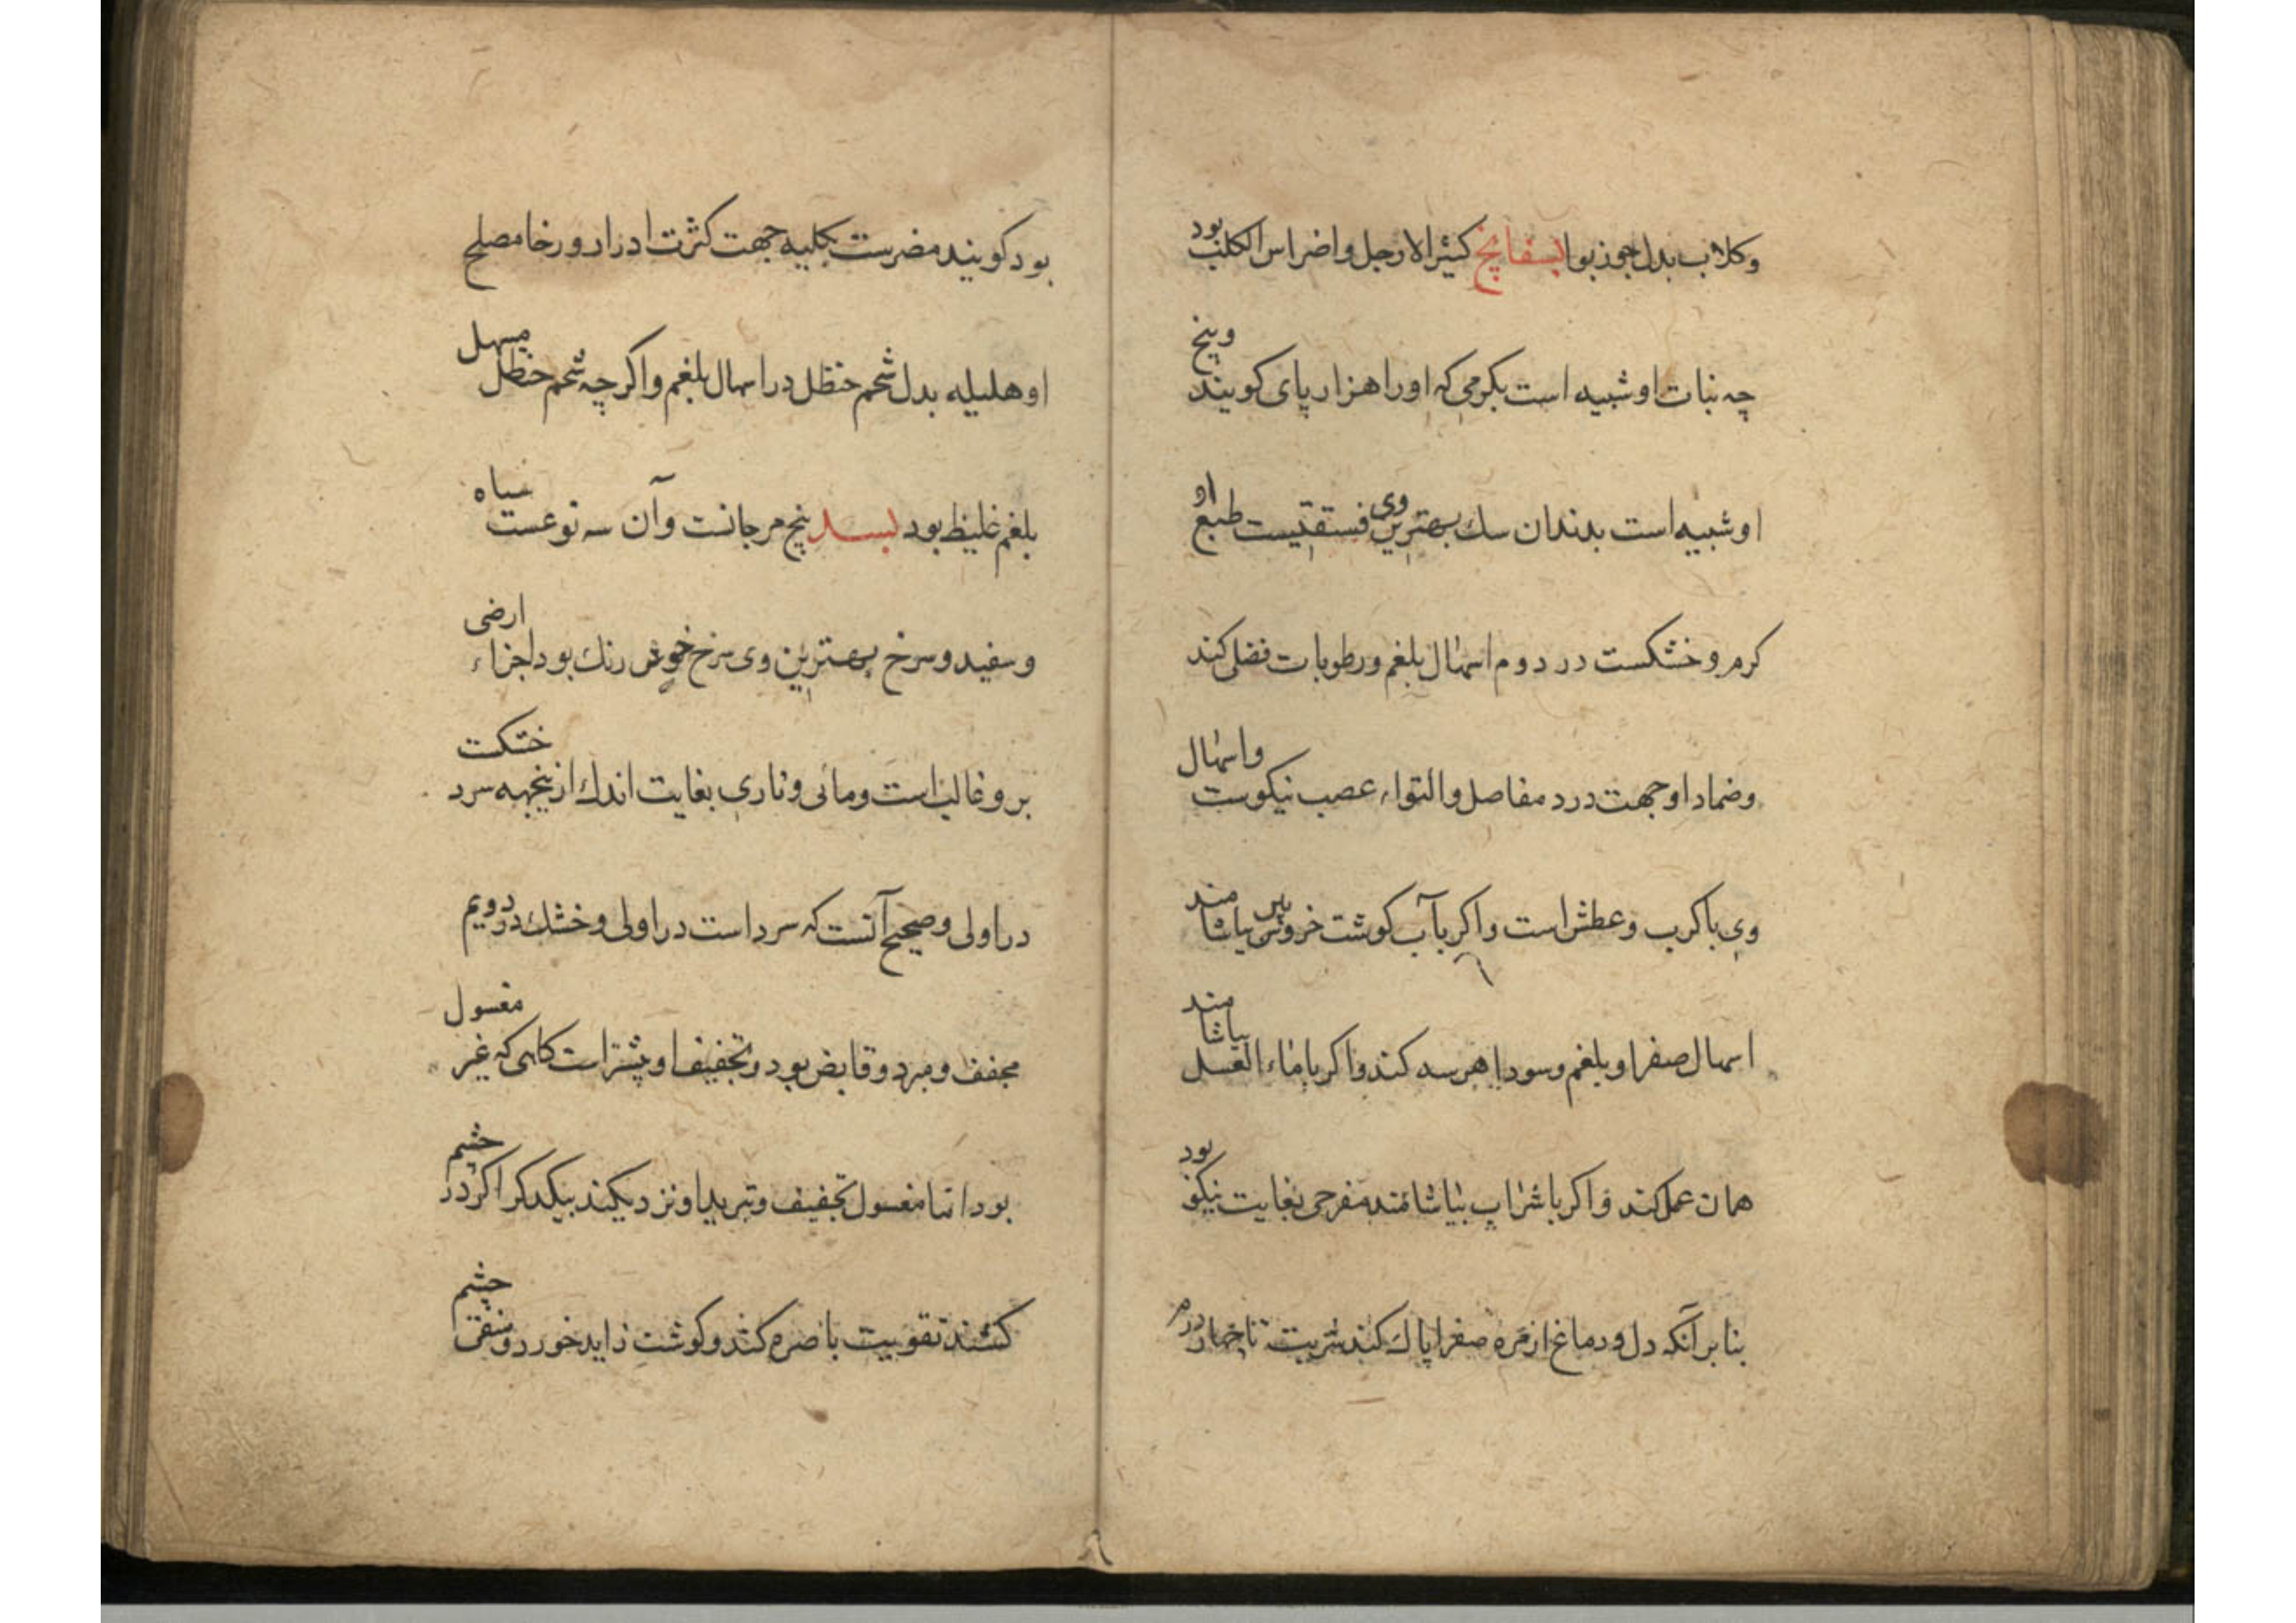 وکلاب بدل جوز بوا بسفایج کثیر الارجل و اضراس الکلب بود
چه نبات او شبیه است بکرمی که او را هزار پای کویند وبیخ
او شبیه است بدندان سك بهترین وی فستقیست طبع او
کرم و خشکست در دوم اسهال بلغم و رطوبات فضلی کند
وضماد او جهت درد مفاصل و التواء عصب نیکوست واسهال
وی با کرب و عطش است و اکر بآب کوشت خروس پیر بیاشامند
اسهال صفرا و بلغم و سودا هرسه کند و اکر با ماء العسل بیاشامند
همان عمل کند و اکر با شراب بیاشامند مفرحی بغایت نیکو بود
بنابر آنکه دل و دماغ از مره صفرا پاك کند شربت تا چهار درم
بود کویند مضرست بکلیه جهت کثرت ادرار و رخا مصلح
او هلیله بدل شحم حنظل در اسهال بلغم و اکرچه شحم حنظل مسهل
بلغم غلیظ بود بسد بیخ مرجانست وآن سه نوعست سیاه
و سفید و سرخ بهترین وی سرخ خوش رنك بود اجزاء ارضی
برو غالب است و مائی و ناری بغایت اندك ازینجهه سرد خشکت
در اولی و صحیح آنست که سرد است در اولی و خشك در دویم
مجفف و مبرد و قابض بود و تجفیف او بیشتر است کاهی که غیر مغسول
بود اما مغسول تجفیف و تبرید او نزدیکند بیکدکر اکر در چشم
کشند تقویت باصره کند و کوشت زاید خورد و منقی چشم